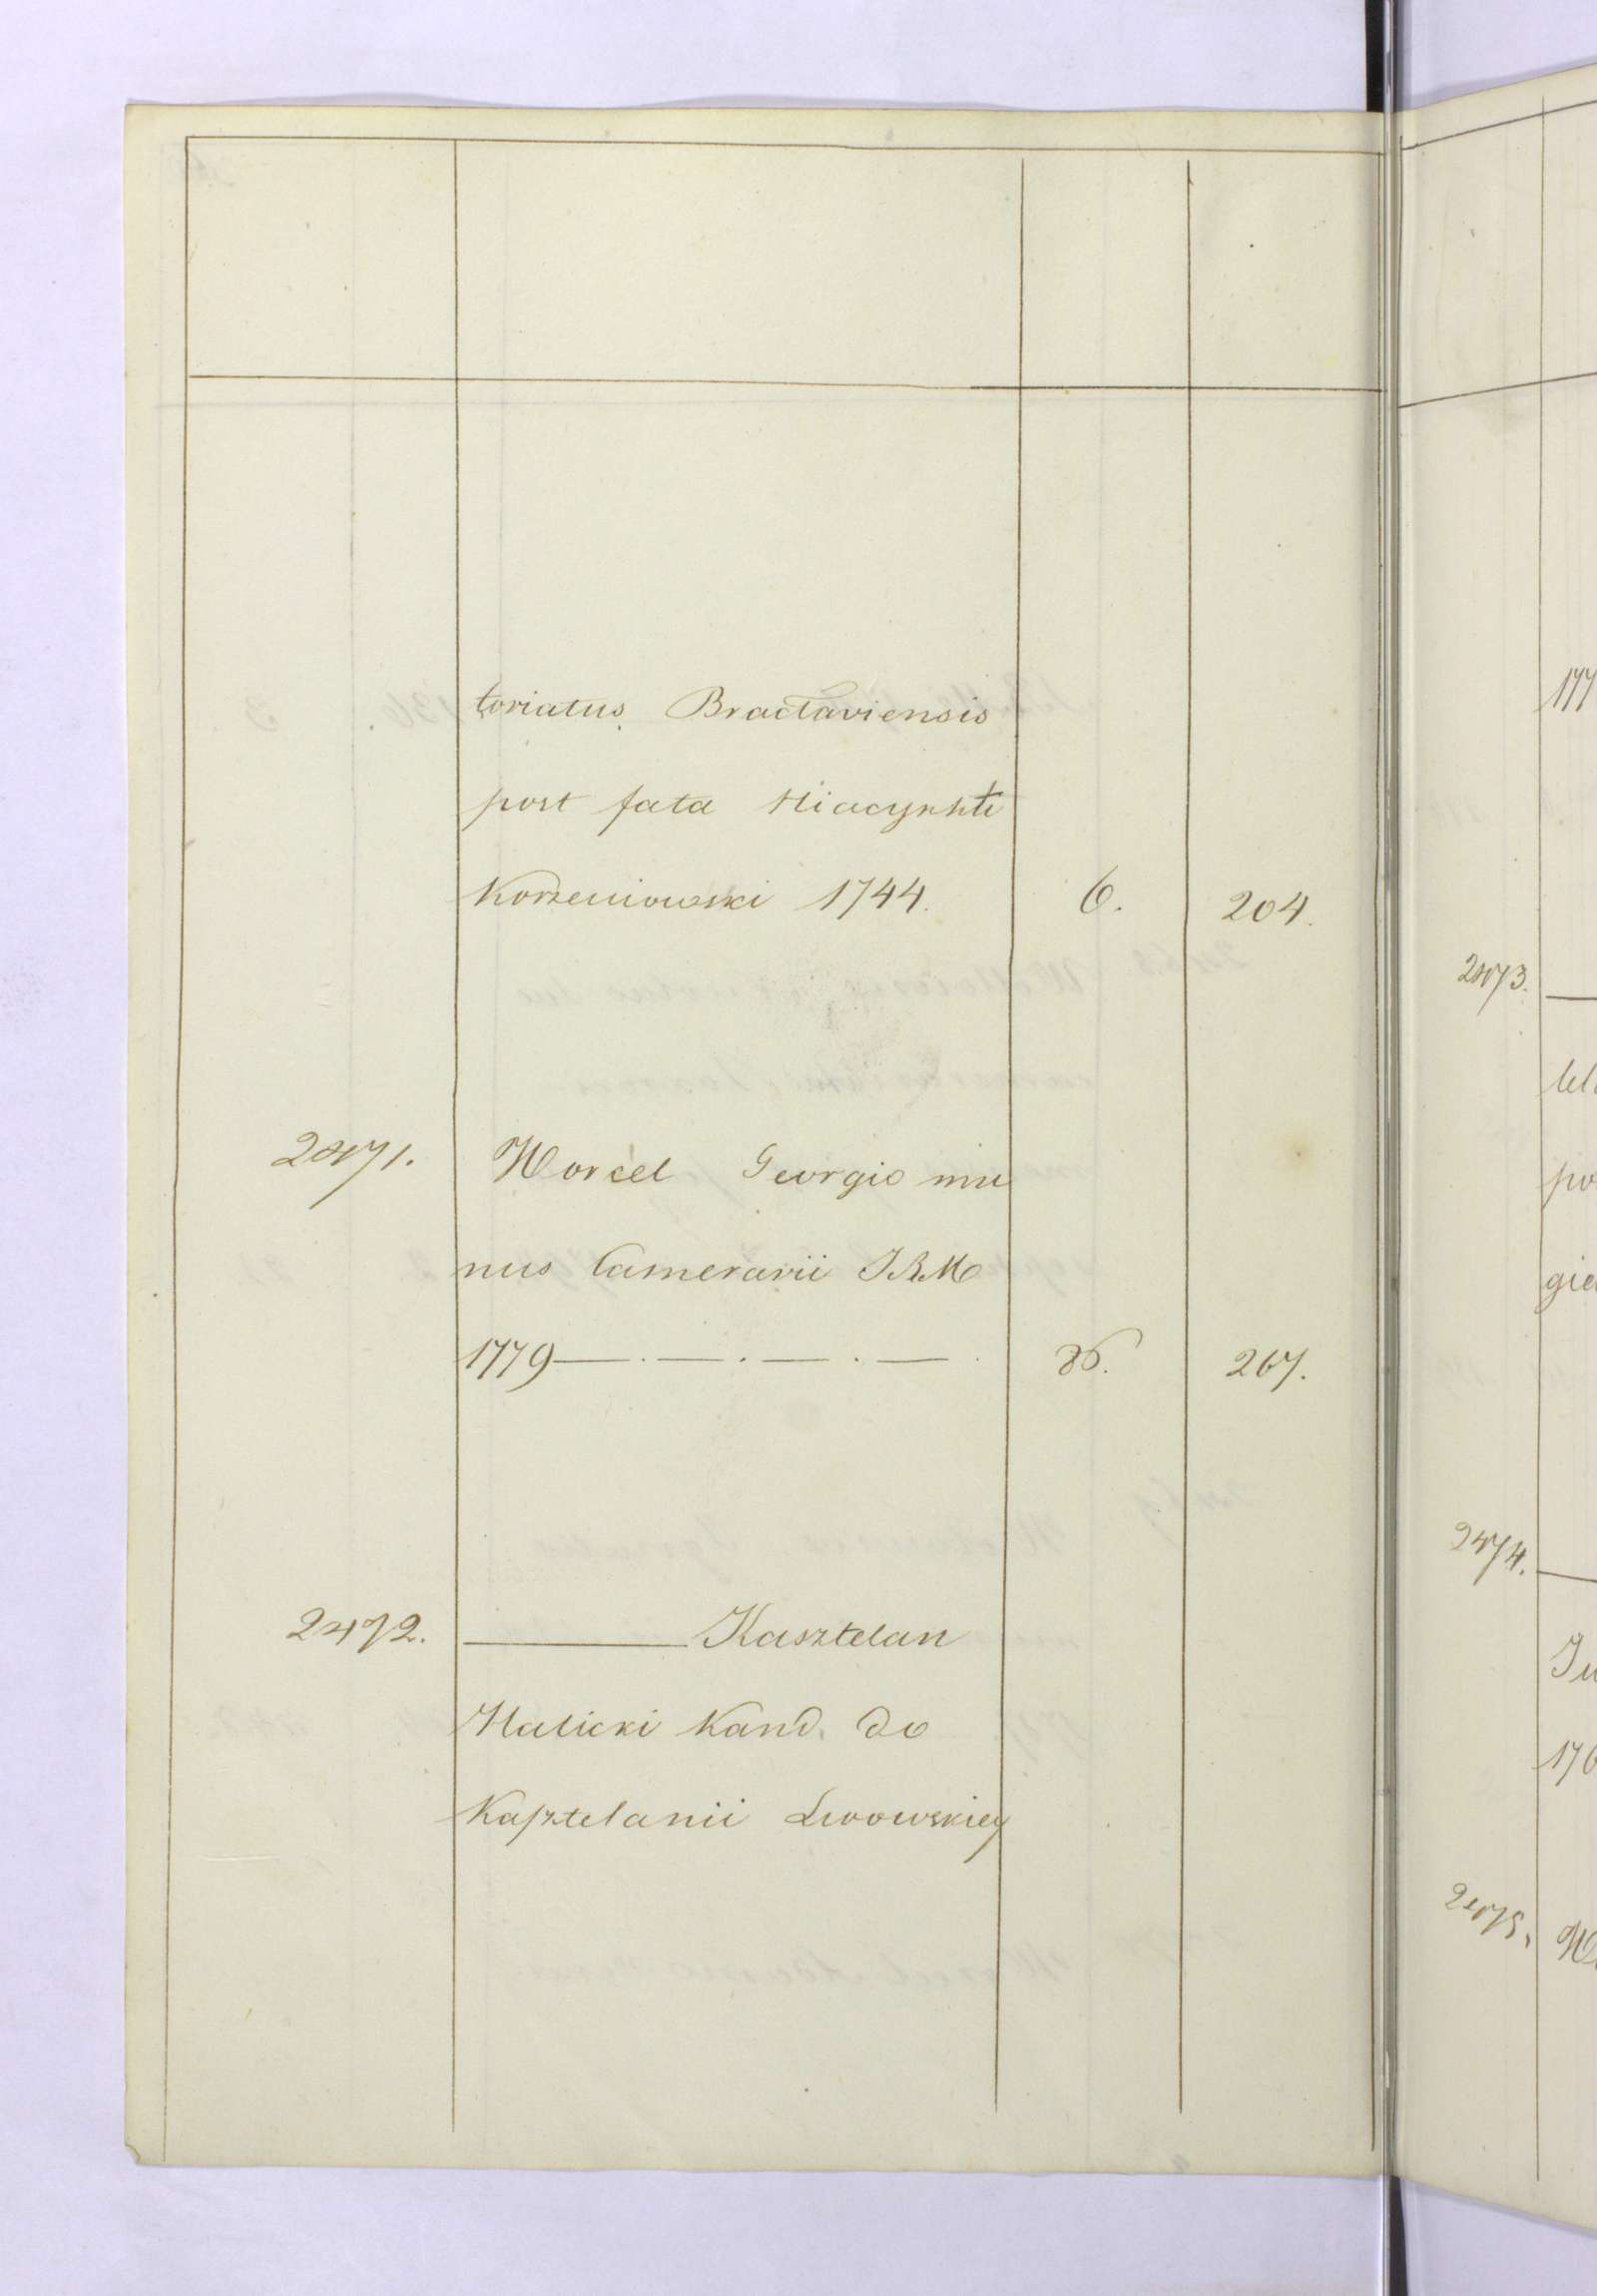 toriatus Bracłaviensis
post fata Hiacynhti
Korzeniowski 1744. 6. 204.
2471. Worcel Georgio mu
nus Camerarii SRM
1779 — . — . — . — . 26. 267.
2472. ——— Kasztelan
Halicki Kand. do
Kasztelanii Lwowskiey
177
2473. —
po
2474. —
Ju
176
2475.